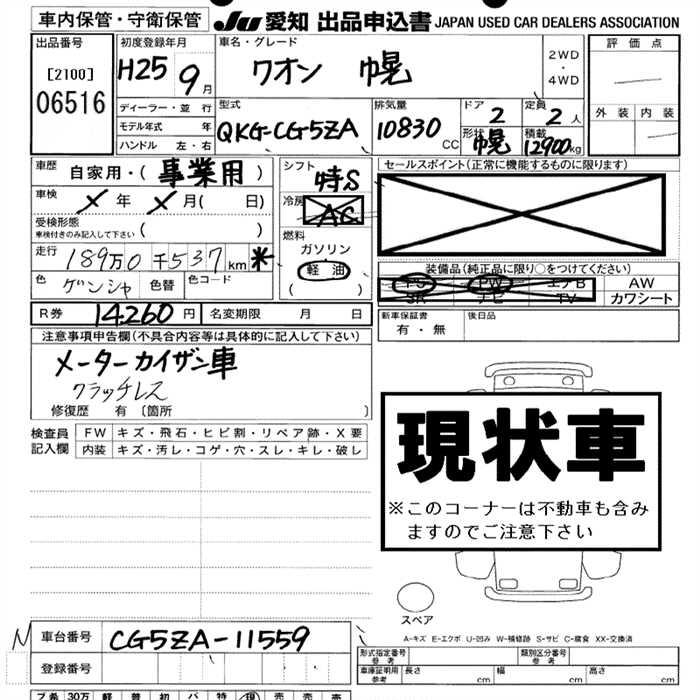 車内保管・守衛保管
JU 愛知 出品申込書 JAPAN USED CAR DEALERS ASSOCIATION
出品番号
[2100]
06516
初度登録年月
H25 9月
ディーラー・並 行
モデル年式 年
ハンドル 左・右
車名・グレード
クオン 幌
2WD
・
4WD
評 価 点
外 装 内 装
型式
QKG-CG5ZA
排気量
10830 CC
ドア
2
定員
2 人
形状
幌
積載
12900kg
車歴 自家用・( 事業用 )
車検 × 年 × 月( 日)
受検形態
車検付きのみ記入して下さい ( )
走行 189万0千537km *
色 ゲンシャ 色替 色コード
シフト
特S
冷房
AC
燃料
ガソリン
軽 油
( )
セールスポイント(正常に機能するものに限ります)
装備品(純正品に限り○をつけてください)
PS PW エアB AW
SR ナビ TV カワシート
R券 14260円 名変期限 月 日
新車保証書
有・無
後日品
注意事項申告欄(不具合内容等は具体的に記入して下さい)
メーターカイザン車
クラッチレス
修復歴 有 〔箇所 〕
検査員
記入欄
FW キズ・飛石・ヒビ割・リペア跡・X要
内装 キズ・汚レ・コゲ・穴・スレ・キレ・破レ
現状車
※このコーナーは不動車も含み
ますのでご注意下さい
スペア
A-キズ E-エクボ U-凹み W-補修跡 S-サビ C-腐食 XX-交換済
N 車台番号 CG5ZA-11559
登録番号
形式指定番号
参 考
類別区分番号
参 考
車庫証明用
参 考
長さ cm 幅 cm 高さ cm